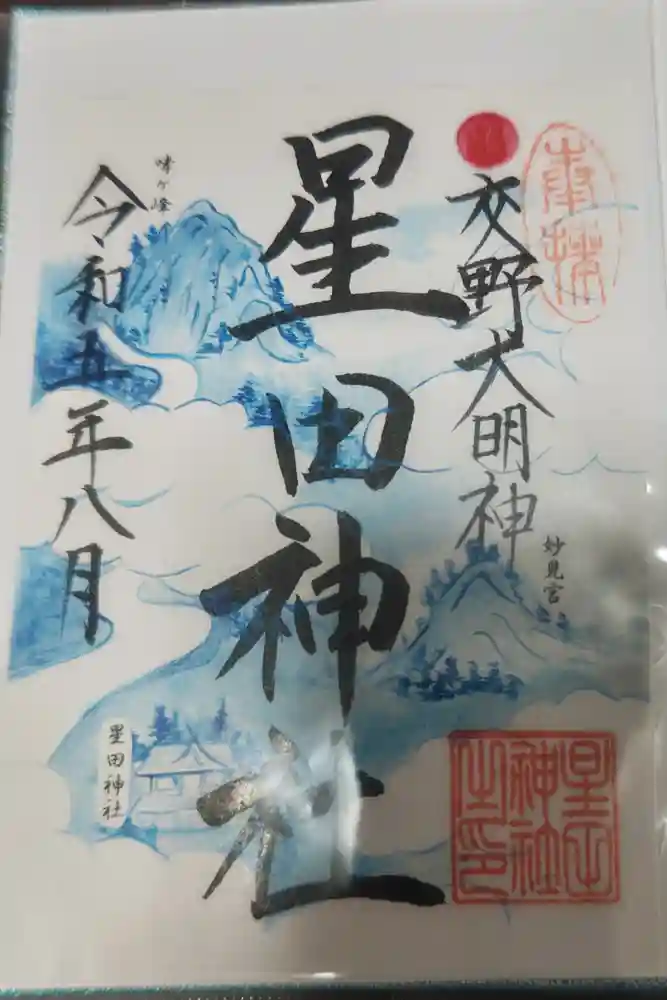 奉拝
交野大明神
妙見宮
星田神社
星田神社之印
哮ヶ峰
令和五年八月
星田神社